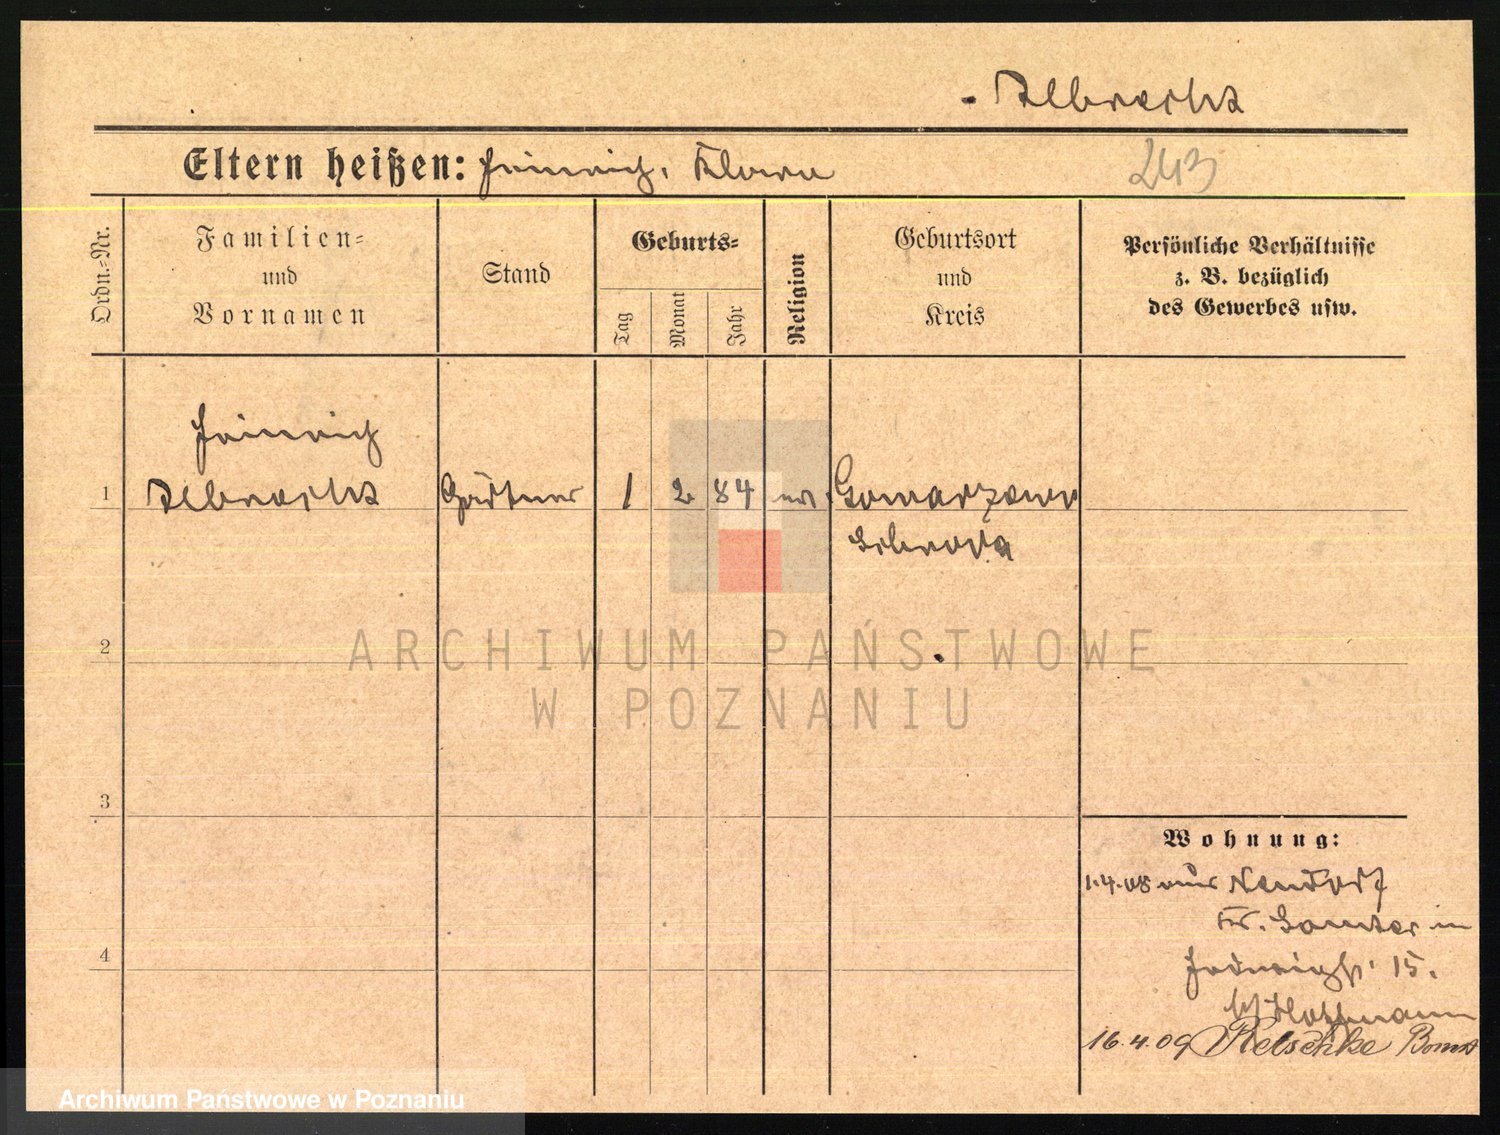 Albrecht
Eltern heißen: Heinrich, Klara
243
Ordn.-Nr.
Familien-
und
Vornamen
Stand
Geburts-
Tag
Monat
Jahr
Religion
Geburtsort
und
Kreis
Persönliche Verhältnisse
z. B. bezüglich
des Gewerbes usw.
Heinrich
1 Albrecht Gärtner 1 2 84
2
ARCHIWUM PAŃSTWOWE
W POZNANIU
3
Wohnung:
1.4.08 aus Neudorf
Kr. Samter in
15.
4
Hoffmann
16.4.09 Retschke Bomst
Archiwum Państwowe w Poznaniu